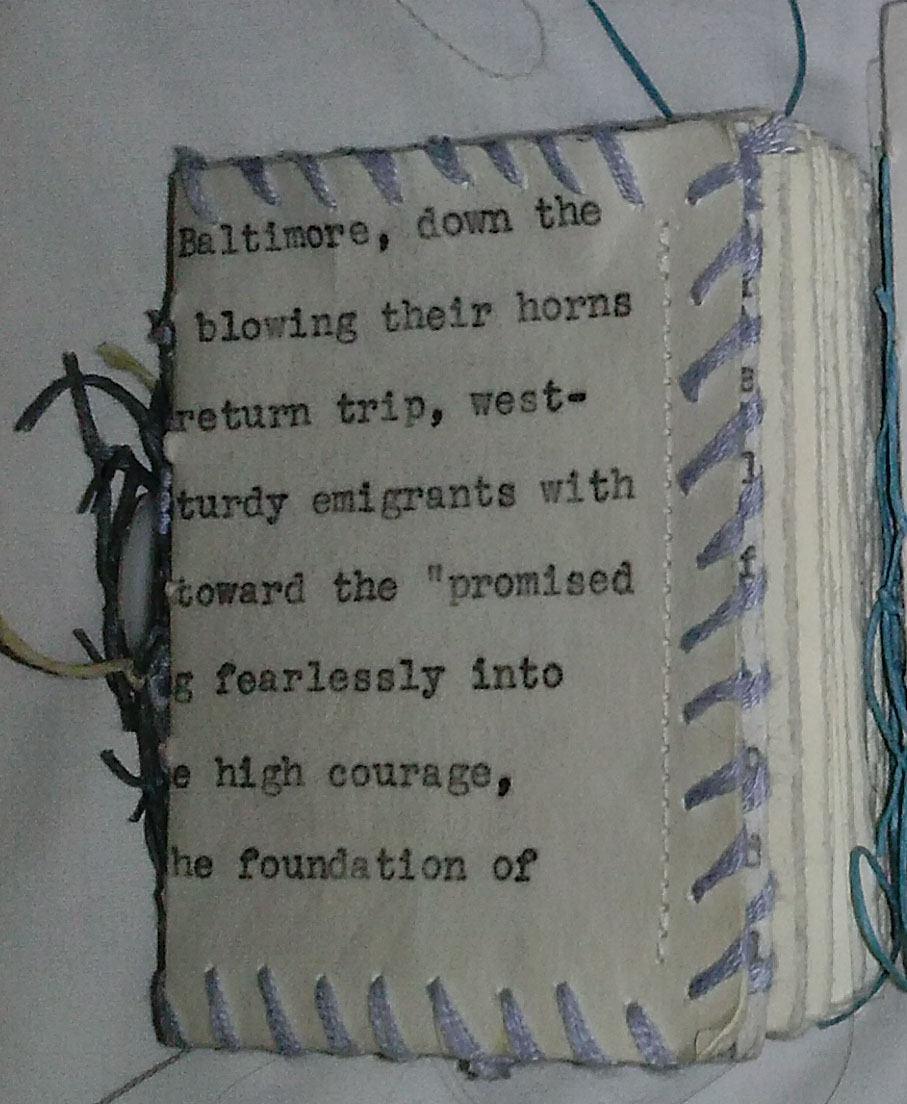 Baltimore, down the
blowing their horns
return trip, west-
turdy emigrants with
toward the "promised
g fearlessly into
e high courage,
he foundation of